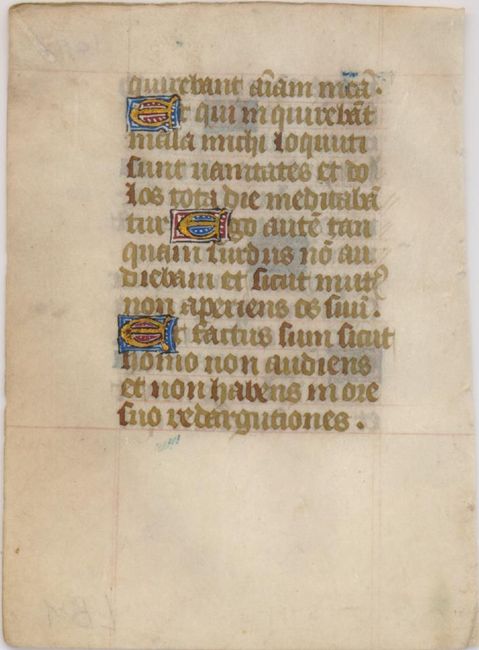 quirebant aīam meā.
Et qui inquirebāt
mala michi loquuti
sunt uanitates et do
los tota die meditabā
tur Ego autē tan
quam surdus nō au
diebam et sicut mutꝰ
non aperiens os suū.
Et factus sum sicut
homo non audiens
et non habens in ore
suo redargutiones.